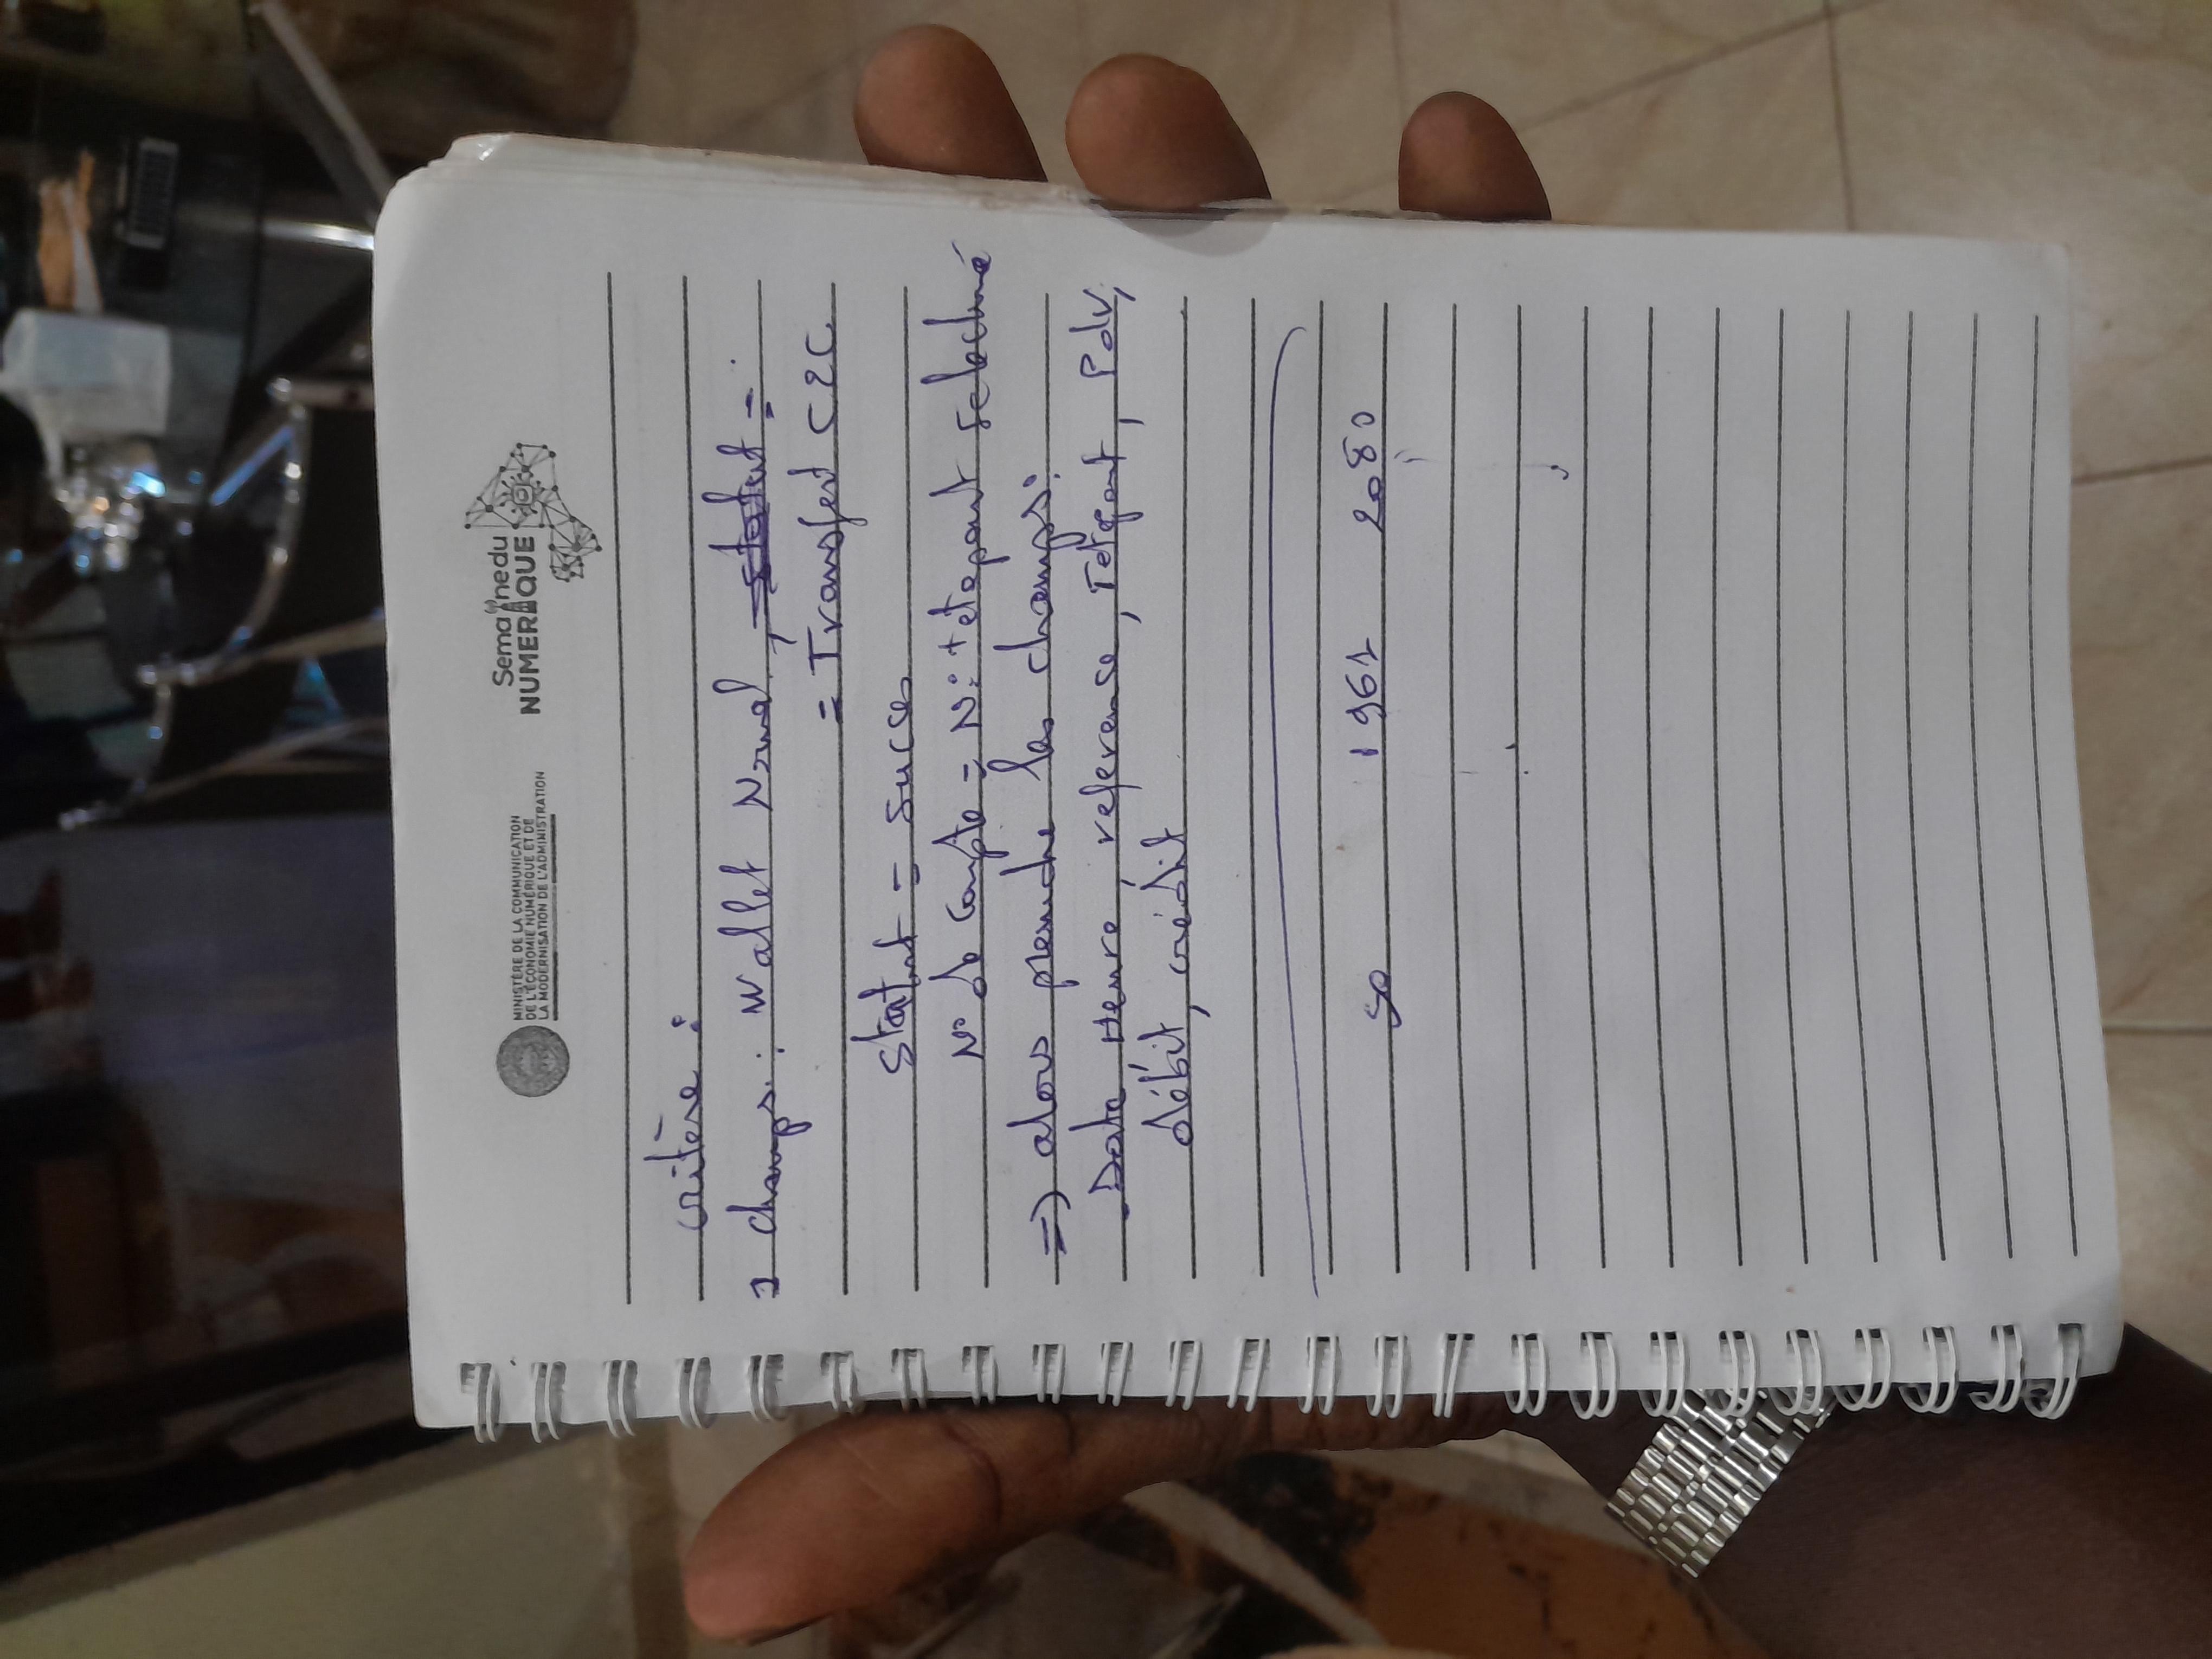 MINISTÈRE DE LA COMMUNICATION
DE L'ÉCONOMIE NUMÉRIQUE ET DE
LA MODERNISATION DE L'ADMINISTRATION
Semaine du
NUMERIQUE
critère :
champs : Wallet Normal, statut =
= Transfert C2C
Statut = succes
N° de Compte = N° tetepont selectné
=> alors prendre les champs :
- Date, Heure, reference, Tetepont, Pdv,
débit, crédit
50 1961 2080